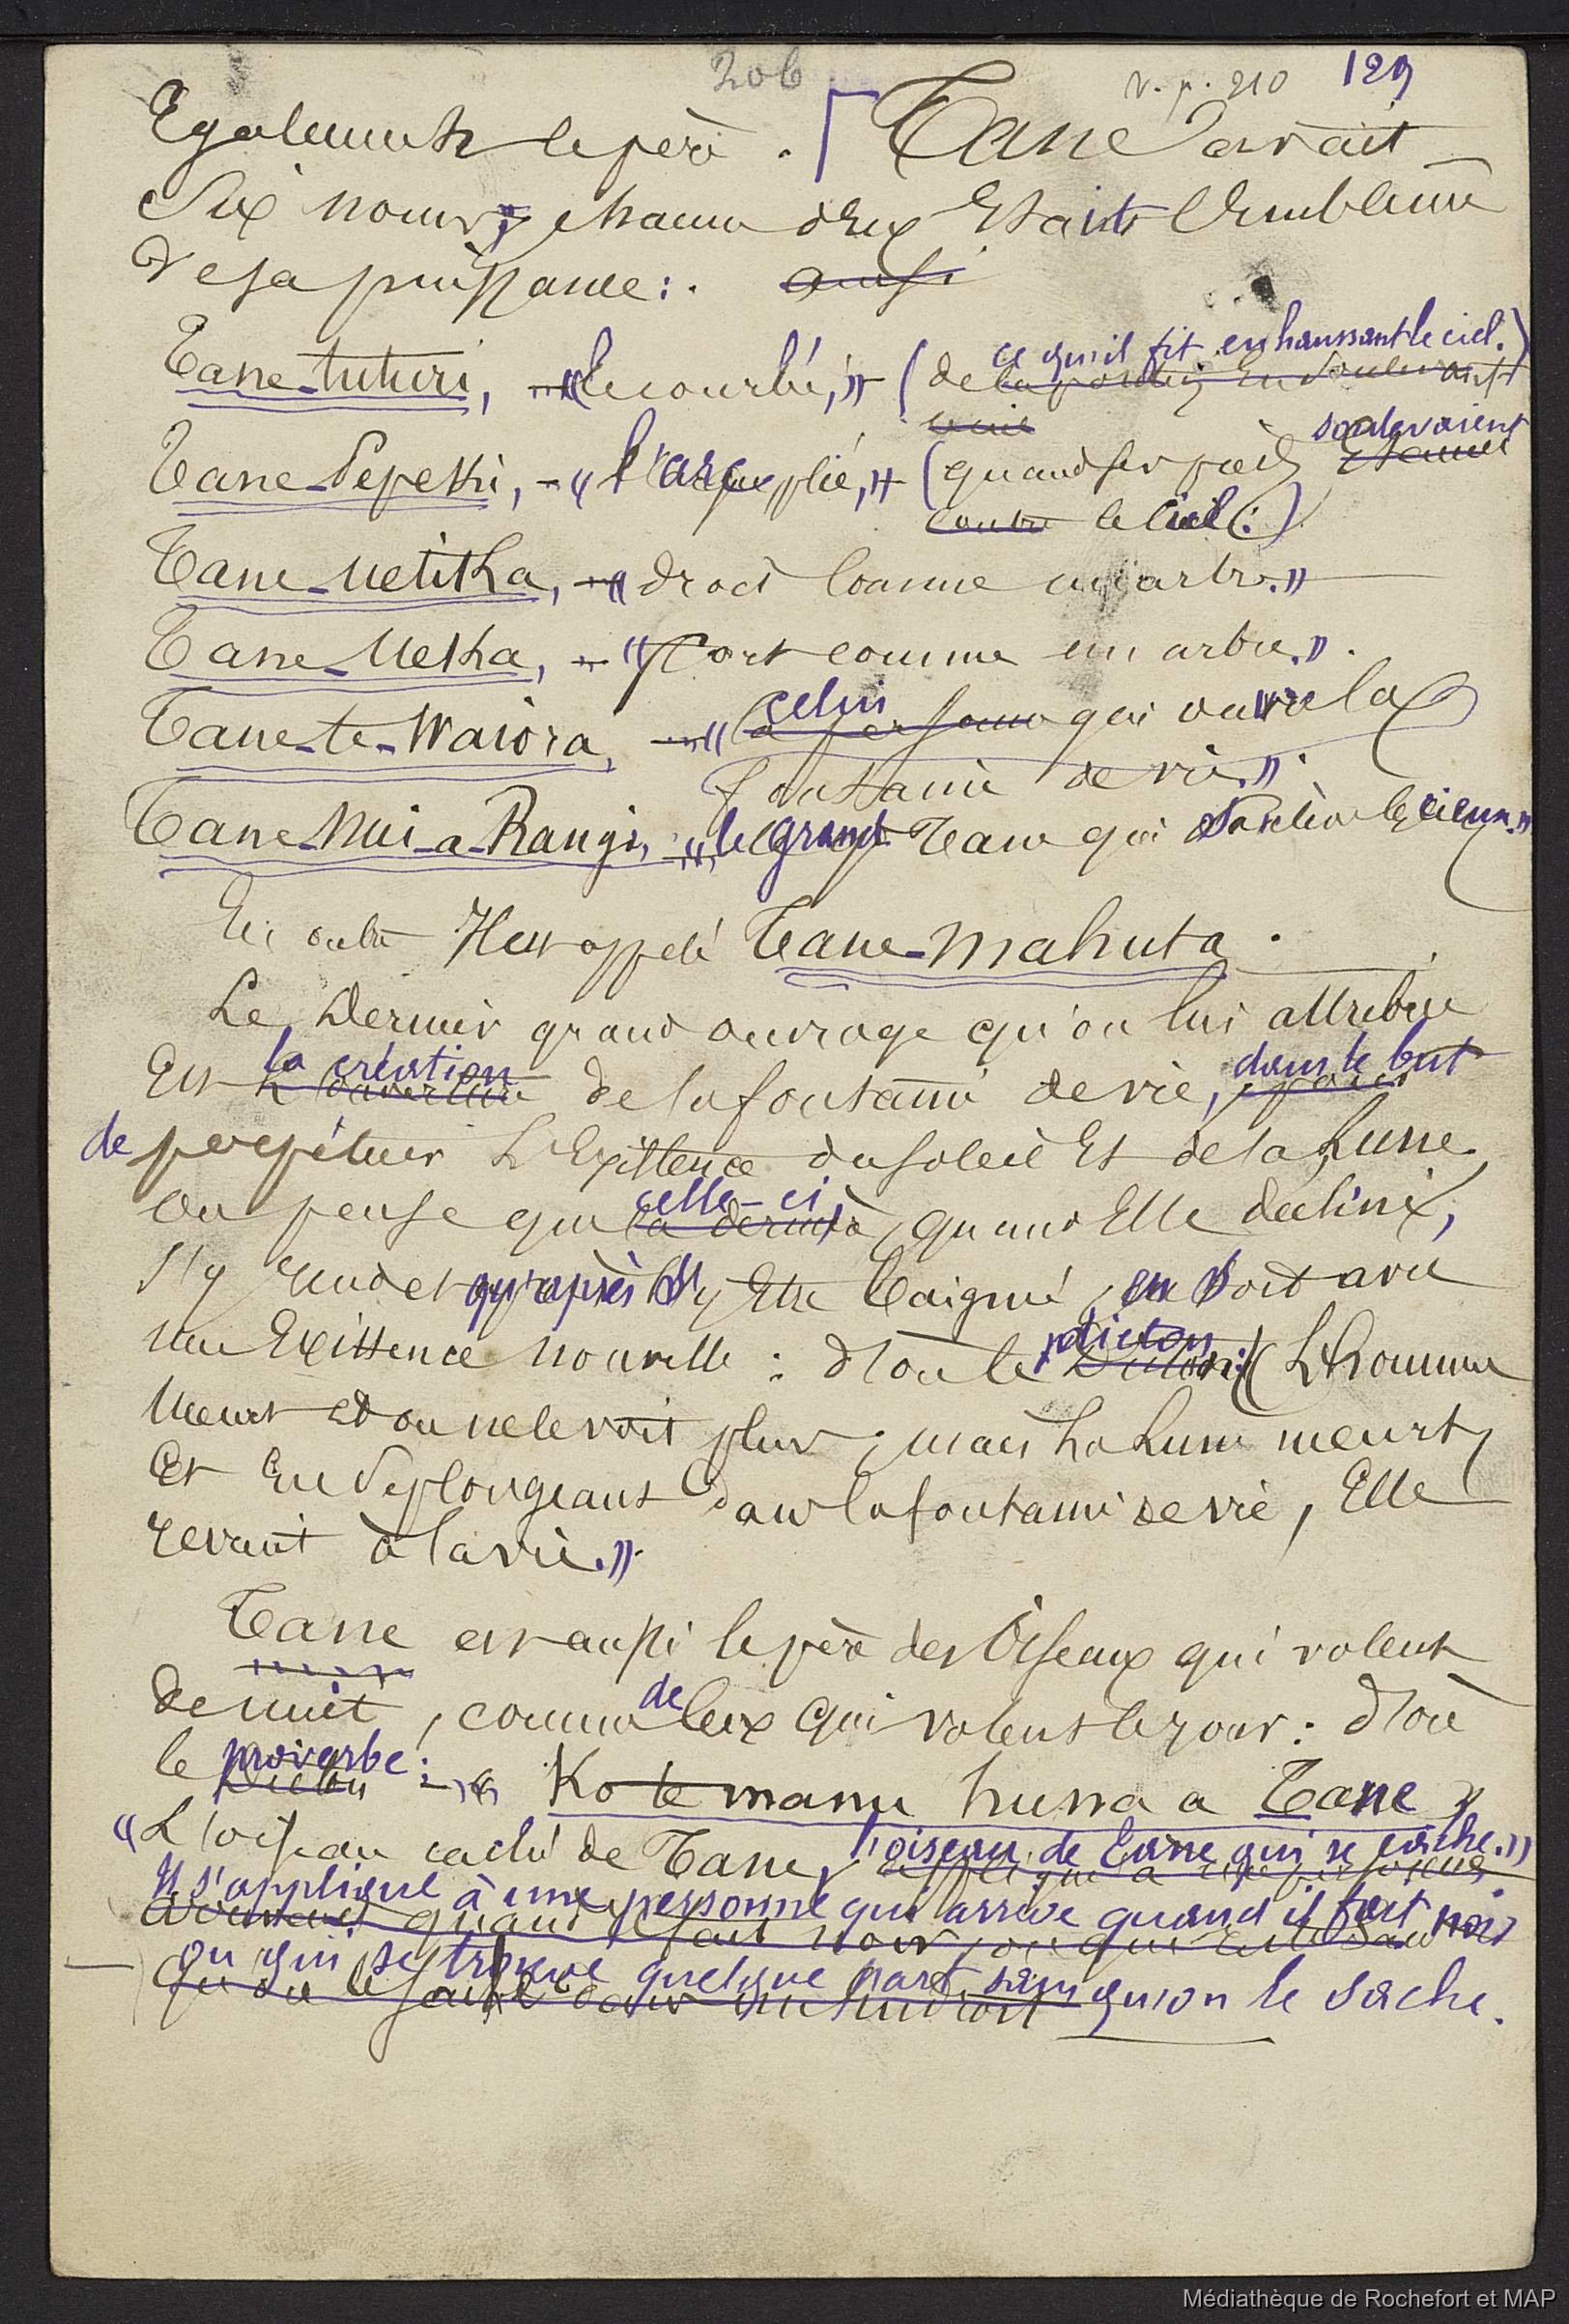 206 v. p. 210 129
Egalement le père. Tane avait
Six noms, chacun d'Eux Etait l'Emblème
de sa puissance : ainsi
ce qu'il fit en haussant le ciel.)
Tane-tuturi, «le courbé,» (de la position En soulevant
le ciel
soulevaient
Tane-Pepeki, «l'arc plié,» (quand ses pieds Etaient
contre le ciel :)
Tane-uetika, «droit comme un arbre.»
Tane-ueka, «fort comme un arbre.»
celui
Tane-te-Waiora, «la personne qui ouvre la
fontaine de vie.»
Tane Nui-a-Rangi, «le grand Tane qui soulève les cieux.»
En outre Il est appelé Tane-mahuta.
Le Dernier grand ouvrage qu'on lui attribue
la création dans le but
Est l'ouverture de la fontaine de vie, pour
de perpétuer L'Existence du soleil Et de la Lune.
celle-ci,
On pense que la dernière, quand Elle decline,
s'y rend et qu'après s'y Etre baignée, en sort avec
dicton
une Existence nouvelle : d'où le Dicton : (L'homme
meurt et on ne le voit plus ; mais La Lune meurt,
Et En se plongeant dans la fontaine de vie, Elle
revient à la vie.»
Tane est aussi le père des Oiseaux qui volent
de
de nuit, comme ceux qui volent le jour : d'où
proverbe :
le Dicton « Ko te manu huna a Tane »
l'oiseau de Tane qui se cache.»
«L'oiseau caché de Tane, appliqué à une personne
Il s'applique à une personne qui arrive quand il fait noir
quand il fait noir, ou qui
ou qui se trouve quelque part sans qu'on le sache.
Médiathèque de Rochefort et MAP